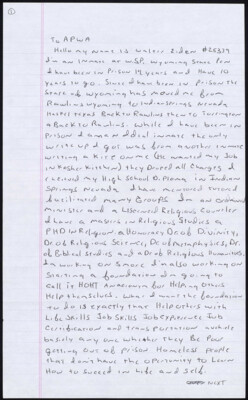 ①
To APWA
Hello my name is Walter Eidem #25319
I'm an inmate at WSP, Wyoming State Pen
I have been in Prison 14 years and Have 10
years to go. Since I have been in Prison the
State of Wyoming has moved me from
Rawlins Wyoming to Indian Springs Nevada
Back to Rawlins then to Torrington
& Back to Rawlins. While I have been in
Prison I am a model inmate the only
write up I got was from another inmate
writing a Kite on me he wanted my Job
in Kosher Kitchen they Droped all charges I
recived my High School Diploma in Indian
Springs Nevada I have mentored tutord
facilitated many Groups I'm an ordained
minister and a Licensed Religious Counsler
I have a masters in Religious Studies a
PHD in Religion a Honorary Dr of Divinity,
Dr of Religious Science, Dr of Metaphysics, Dr.
of Biblical Studies and a Dr of Religious Humanities.
I'm working on 5 more I'm also working on
Starting a foundation I'm going to
call it HOHT Americans for Helping Others
Help themselves. What I want the foundation
to do is exactly that Help others with
Life Skills Job Skills Job Experience Job
Certification and transportation
basicly any one whether They Be
getting out of Prison Homeless people
that don't have the opportunity to Learn
How to suceed in Life and self.
NEXT